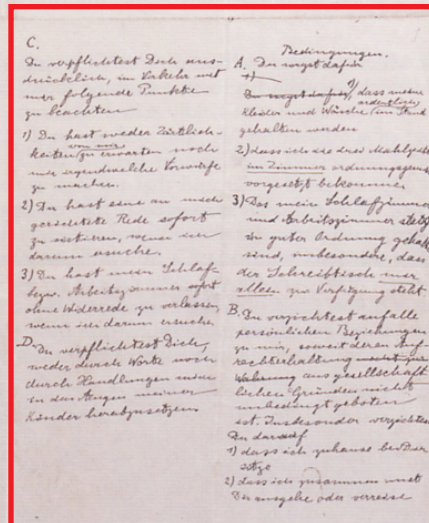 C.
Du verpflichtest Dich aus-
drücklich, im Verkehr mit
mir folgende Punkte
zu beachten
1) Du hast weder Zärtlich-
keiten von mir zu erwarten noch
mir irgendwelche Vorwürfe
zu machen.
2) Du hast eine an mich
gerichtete Rede sofort
zu sistieren, wenn ich
darum ersuche.
3) Du hast mein Schlaf-
bezw. Arbeitszimmer sofort
ohne Widerrede zu verlassen,
wenn ich darum ersuche.
D. Du verpflichtest Dich,
weder durch Worte noch
durch Handlungen mich
in den Augen meiner
Kinder herabzusetzen.
Bedingungen.
A. Du sorgst dafür
Du sorgst dafür, 1) dass meine
Kleider und Wäsche ordentlich im Stand
gehalten werden
2) dass ich die drei Mahlzeit
im Zimmer ordnungsgem
vorgesetzt bekomme.
3) Das mein Schlafzimmer
und Arbeitszimmer stets
in guter Ordnung gehal
sind, insbesondere, dass
der Schreibtisch mir
allein zur Verfügung steht.
B. Du verzichtest auf alle
persönlichen Beziehungen
zu mir, soweit deren Auf-
rechterhaltung aus gesellschaft
lichen Gründen nicht
unbedingt geboten
ist. Insbesondere verzichtest
Du darauf
1) dass ich zuhause bei Dir
sitze
2) dass ich zusammen mit
Dir ausgehe oder verreise